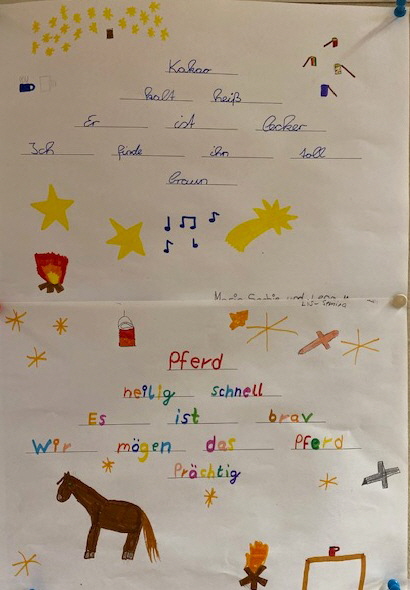 Kakao
kalt heiß
Er ist lecker
Ich finde ihn toll
braun
und
Pferd
heilig schnell
Es ist brav
Wir mögen das Pferd
Prächtig